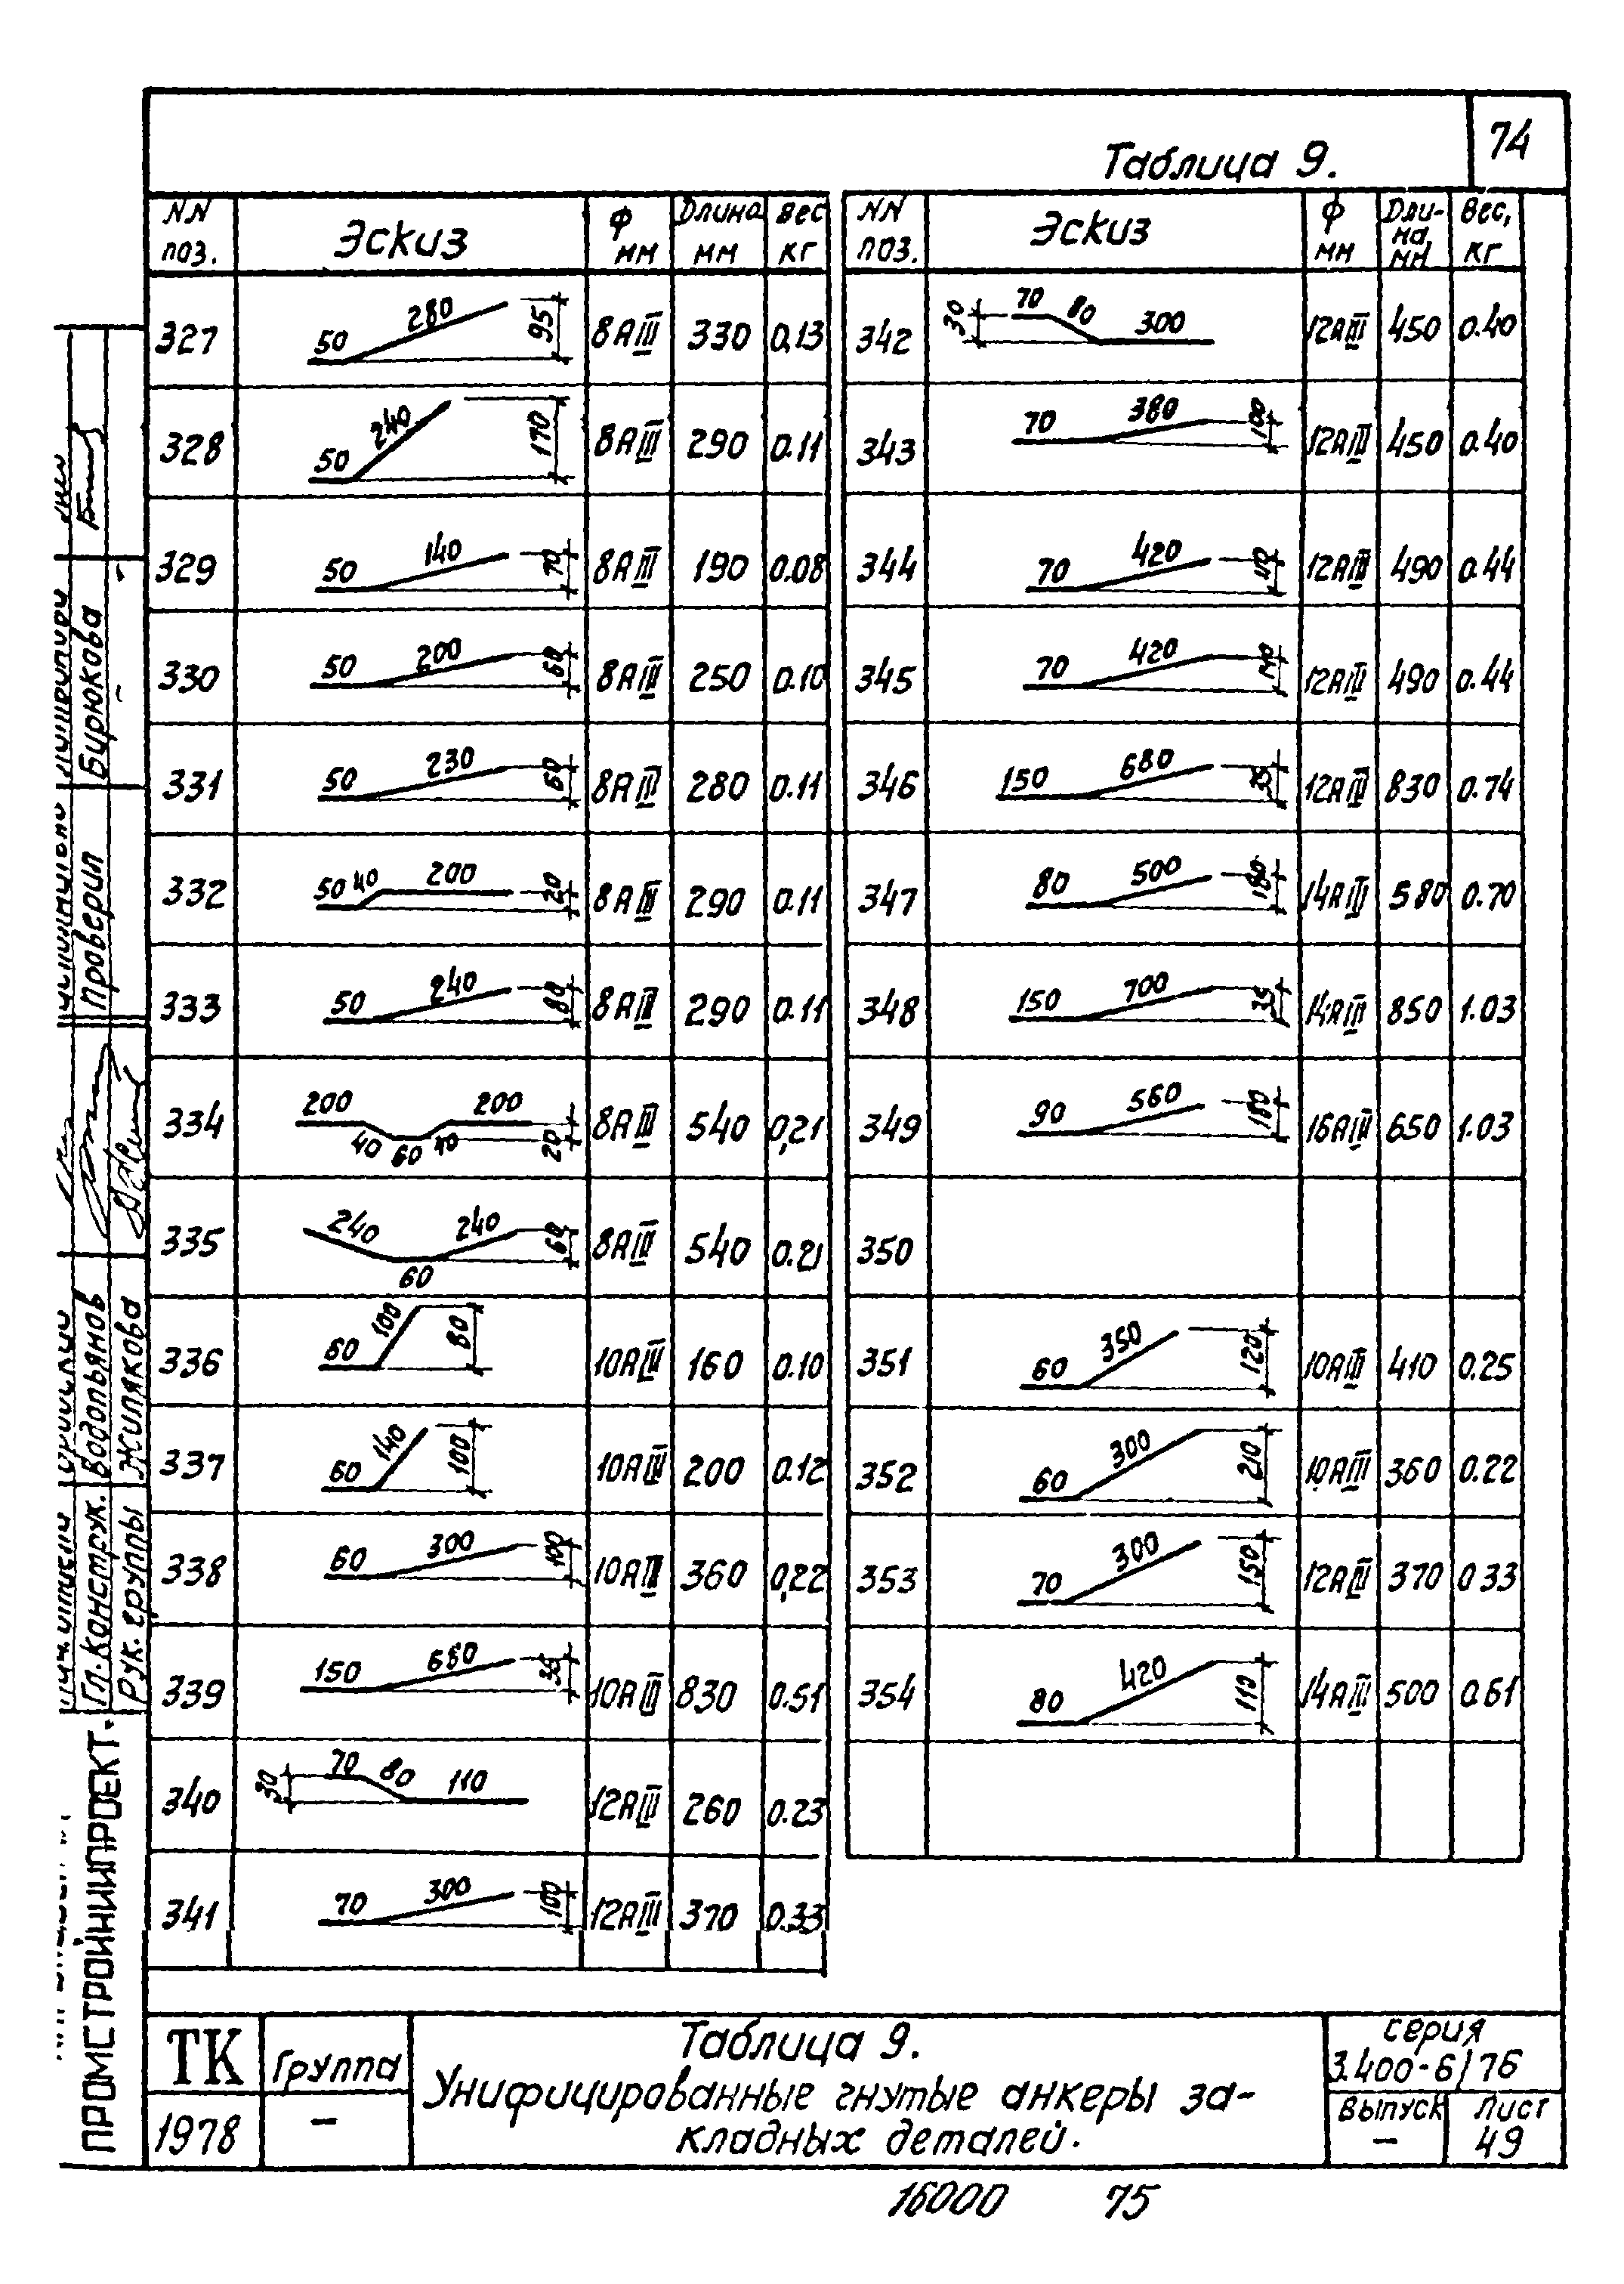 74
Таблица 9.
NN поз. Эскиз Ф мм Длина мм Вес кг
327 50 280 95 8АIII 330 0,13
328 50 240 170 8АIII 290 0.11
329 50 140 70 8АIII 190 0.08
330 50 200 60 8АIII 250 0.10
331 50 230 60 8АIII 280 0.11
332 50 40 200 20 8АIII 290 0.11
333 50 240 80 8АIII 290 0.11
334 200 40 60 40 200 20 8АIII 540 0,21
335 240 60 240 60 8АIII 540 0.21
336 60 100 80 10АIII 160 0.10
337 60 140 100 10АIII 200 0.12
338 60 300 100 10АIII 360 0,22
339 150 680 35 10АIII 830 0.51
340 30 70 80 110 12АIII 260 0.23
341 70 300 100 12АIII 370 0.33
NN поз. Эскиз Ф мм Дли-на мм Вес, кг
342 30 70 80 300 12АIII 450 0.40
343 70 380 100 12АIII 450 0.40
344 70 420 12АIII 490 0.44
345 70 420 140 12АIII 490 0.44
346 150 680 35 12АIII 830 0.74
347 80 500 180 14АIII 580 0.70
348 150 700 35 14АIII 850 1.03
349 90 560 180 16АIII 650 1.03
350
351 60 350 120 10АIII 410 0.25
352 60 300 210 10АIII 360 0.22
353 70 300 150 12АIII 370 0 33
354 80 420 110 14АIII 500 0.61
ТК
1978
Группа
–
Таблица 9.
Унифицированные гнутые анкеры за-
кладных деталей.
серия
3.400-6/76
Выпуск
–
Лист
49
16000 75
Проверил Бирюкова
Гл. конструк. Водопьянов
Рук. группы Жилякова
ПРОМСТРОЙНИИПРОЕКТ.